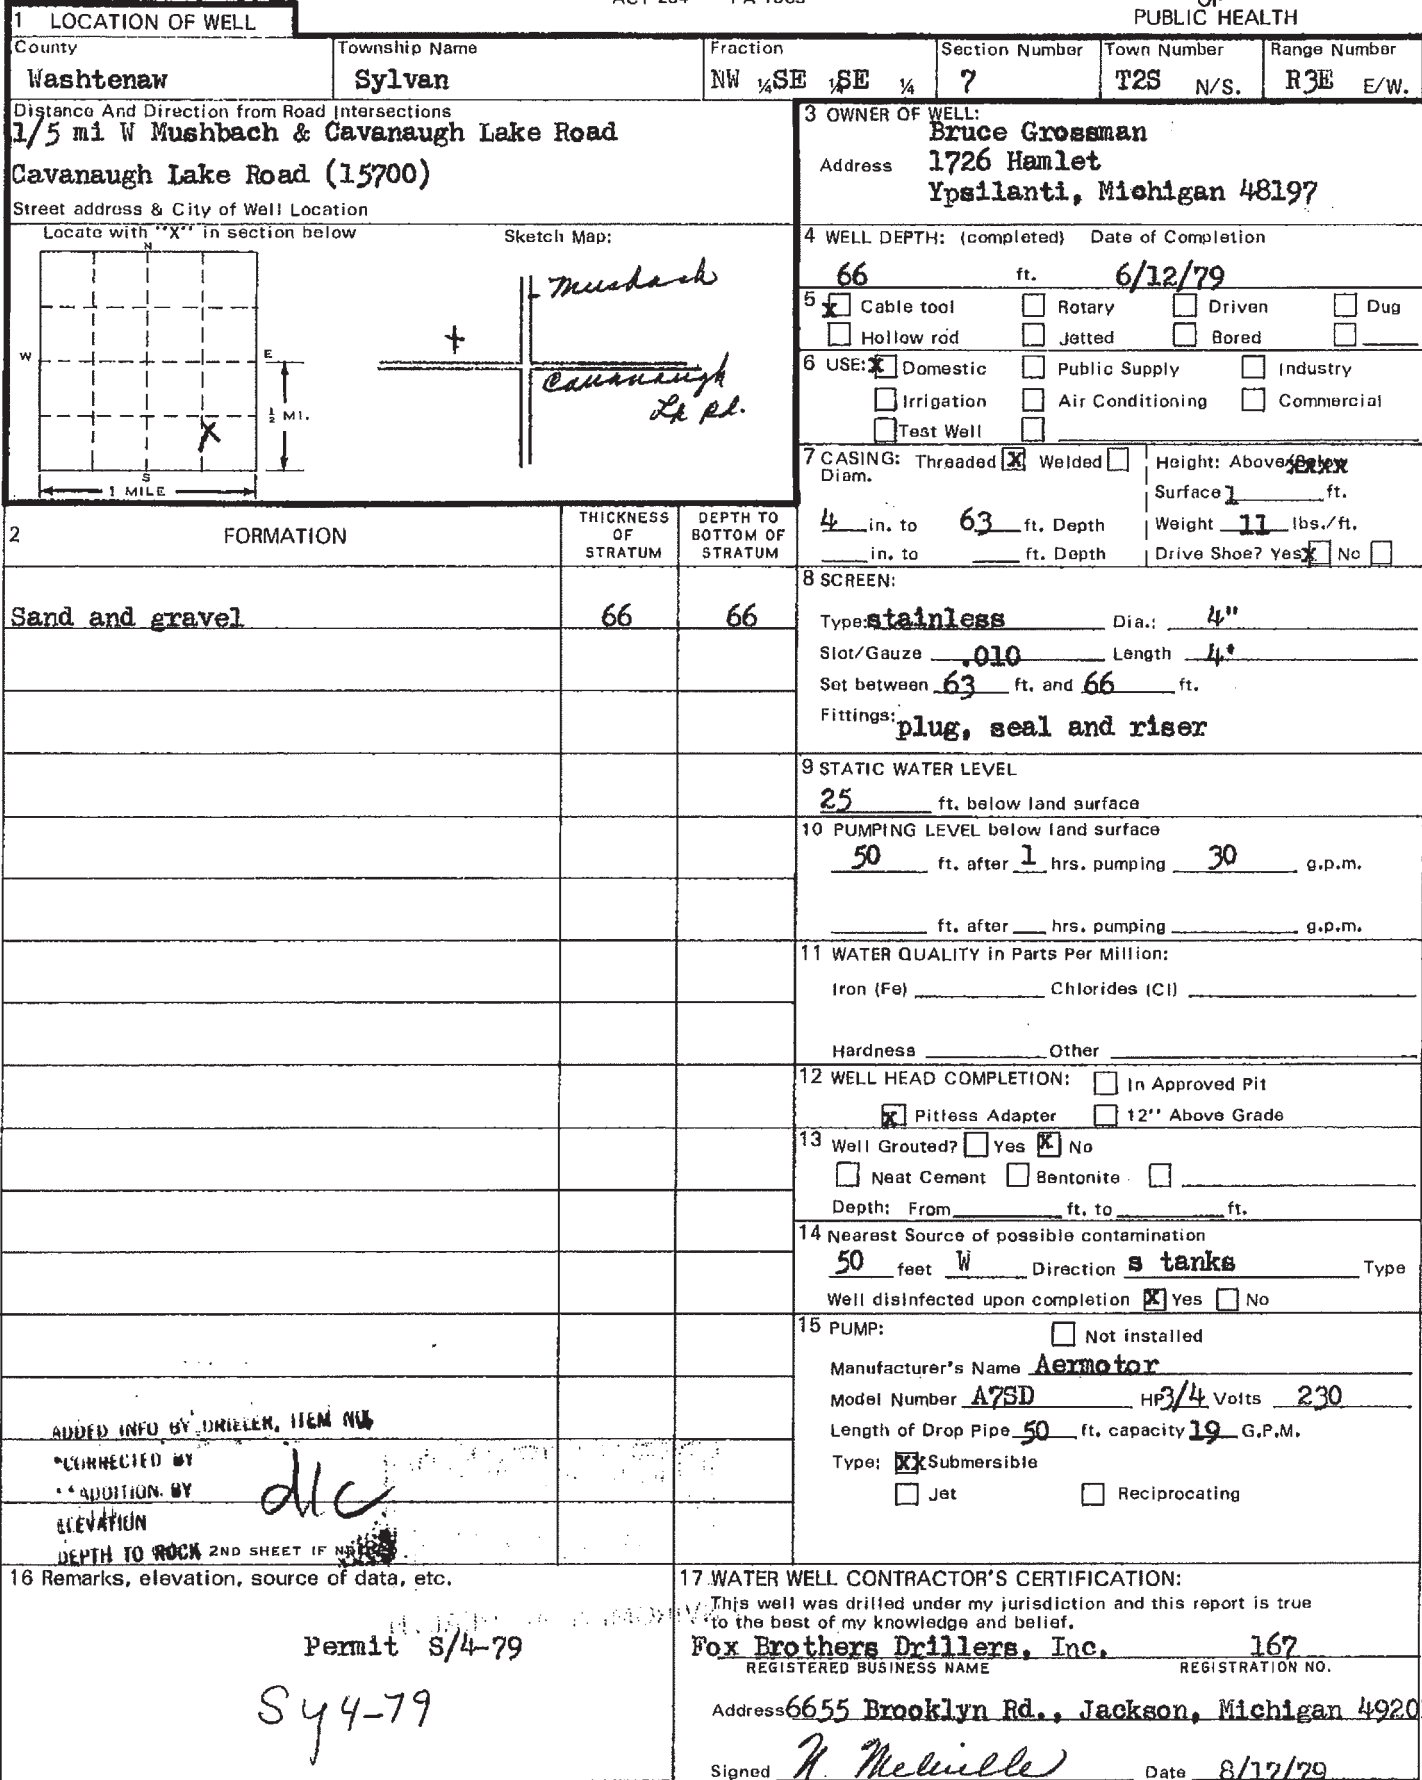 1 LOCATION OF WELL
PUBLIC HEALTH
County Township Name Fraction Section Number Town Number Range Number
Washtenaw Sylvan NW ¼ SE ¼ SE ¼ 7 T2S N/S. R3E E/W.
Distance And Direction from Road Intersections
1/5 mi W Mushbach & Cavanaugh Lake Road
Cavanaugh Lake Road (15700)
Street address & City of Well Location
Locate with "X" in section below
Sketch Map:
N
W
E
S
X
½ MI.
1 MILE
Musbach
Cavanaugh
Lk Rd.
3 OWNER OF WELL:
Bruce Grossman
Address 1726 Hamlet
Ypsilanti, Michigan 48197
4 WELL DEPTH: (completed) Date of Completion
66 ft. 6/12/79
5 x Cable tool Rotary Driven Dug
Hollow rod Jetted Bored
6 USE: X Domestic Public Supply Industry
Irrigation Air Conditioning Commercial
Test Well
7 CASING: Threaded X Welded Height: Above/Below
Diam.
Surface 1 ft.
4 in. to 63 ft. Depth Weight 11 lbs./ft.
in. to ft. Depth Drive Shoe? Yes X No
2 FORMATION
THICKNESS OF STRATUM
DEPTH TO BOTTOM OF STRATUM
Sand and gravel 66 66
8 SCREEN:
Type: stainless Dia.: 4"
Slot/Gauze .010 Length 4'
Set between 63 ft. and 66 ft.
Fittings: plug, seal and riser
9 STATIC WATER LEVEL
25 ft. below land surface
10 PUMPING LEVEL below land surface
50 ft. after 1 hrs. pumping 30 g.p.m.
ft. after hrs. pumping g.p.m.
11 WATER QUALITY in Parts Per Million:
Iron (Fe) Chlorides (Cl)
Hardness Other
12 WELL HEAD COMPLETION: In Approved Pit
X Pitless Adapter 12" Above Grade
13 Well Grouted? Yes X No
Neat Cement Bentonite
Depth: From ft. to ft.
14 Nearest Source of possible contamination
50 feet W Direction s tanks Type
Well disinfected upon completion X Yes No
15 PUMP: Not installed
Manufacturer's Name Aermotor
Model Number A7SD HP 3/4 Volts 230
Length of Drop Pipe 50 ft. capacity 19 G.P.M.
Type: XX Submersible
Jet Reciprocating
ADDED INFO BY DRILLER, ITEM NO.
*CORRECTED BY
**ADDITION BY
dlc
ELEVATION
DEPTH TO ROCK 2ND SHEET IF
16 Remarks, elevation, source of data, etc.
Permit S/4-79
Sy 4-79
17 WATER WELL CONTRACTOR'S CERTIFICATION:
This well was drilled under my jurisdiction and this report is true
to the best of my knowledge and belief.
Fox Brothers Drillers, Inc. 167
REGISTERED BUSINESS NAME REGISTRATION NO.
Address 6655 Brooklyn Rd., Jackson, Michigan 4920
Signed N. Melville Date 8/17/79